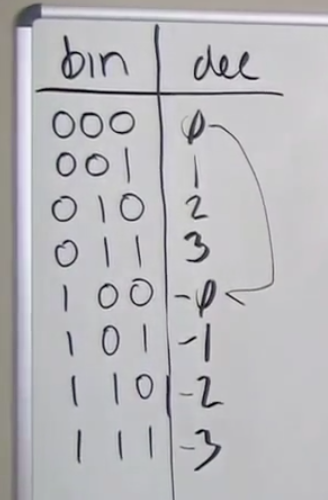 bin dec
000 0
001 1
010 2
011 3
100 -0
101 -1
110 -2
111 -3